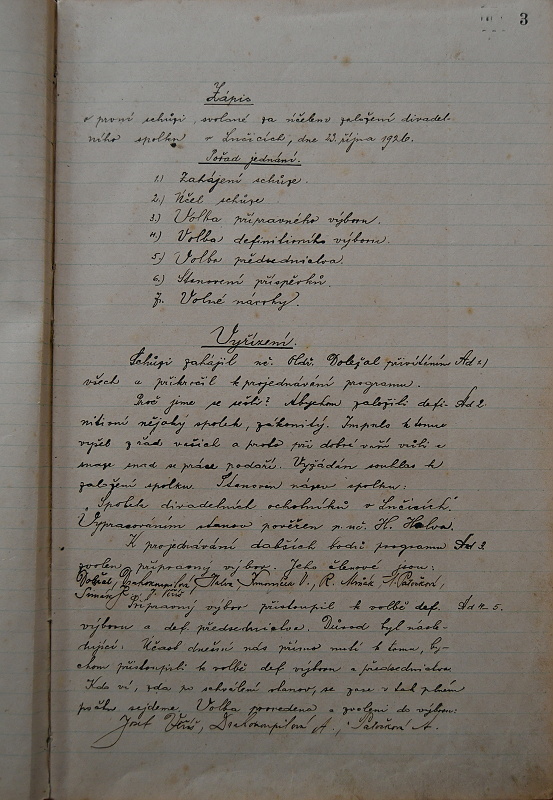 3
Zápis
o první schůzi, svolané za účelem založení divadel-
ního spolku v Lučicích, dne 23. října 1926.
Pořad jednání.
1.) Zahájení schůze.
2.) Účel schůze
3.) Volba přípravného výboru.
4.) Volba definitivního výboru.
5.) Volba předsednictva.
6.) Stanovení příspěvků.
7. Volné návrhy.
Vyřízení.
Schůzi zahájil uč. Oldř. Doležal přivítáním Ad 1)
všech a přikročil k projednávání programu.
Proč jsme se sešli? Abychom založili defi- Ad 2.
nitivní nějaký spolek, zákonitý. Impuls k tomu
vyšel z řad vašich a proto při dobré vaší vůli a
snaze snad se práce podaří. Vyžádán souhlas k
založení spolku. Stanoven název spolku:
"Spolek divadelních ochotníků v Lučicích".
Vypracováním stanov pověřen p. uč. H. Halva.
K projednávání dalších bodů programu Ad 3.
zvolen přípravný výbor. Jeho členové jsou:
Doležal, Drahokoupilová, Halva, V., R. A. Patočková,
J.
Přípravný výbor přistoupil k volbě def. Ad 4-5.
výboru a def. předsednictva. Důvod byl násle-
dující: Účast dnešní nás přímo nutí k tomu, by-
chom přistoupili k volbě def. výboru a předsednictva
Kdo ví, zda po schválení stanov, se zase v tak plném
počtu sejdeme. Volba provedena a zvoleni do výboru:
Josef Drahokoupilová A., Patočková A.